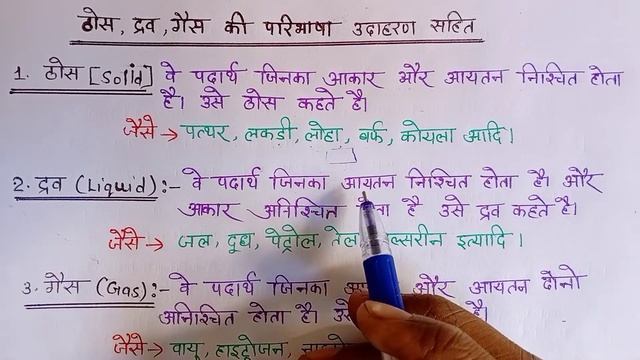 ठोस, द्रव, गैस की परिभाषा उदाहरण सहित
1. ठोस [Solid] वे पदार्थ जिनका आकार और आयतन निश्चित होता
है। उसे ठोस कहते है।
जैसे → पत्थर, लकडी, लोहा, बर्फ, कोयला आदि।
2. द्रव (Liquid):- वे पदार्थ जिनका आयतन निश्चित होता है। और
आकार अनिश्चित है उसे द्रव कहते है।
जैसे → जल, दूध, पेट्रोल, तेल इत्यादि।
3. गैस (Gas):- वे पदार्थ जिनका और आयतन दोनो
अनिश्चित होता है। है।
जैसे → वायु, हाइड्रोजन,